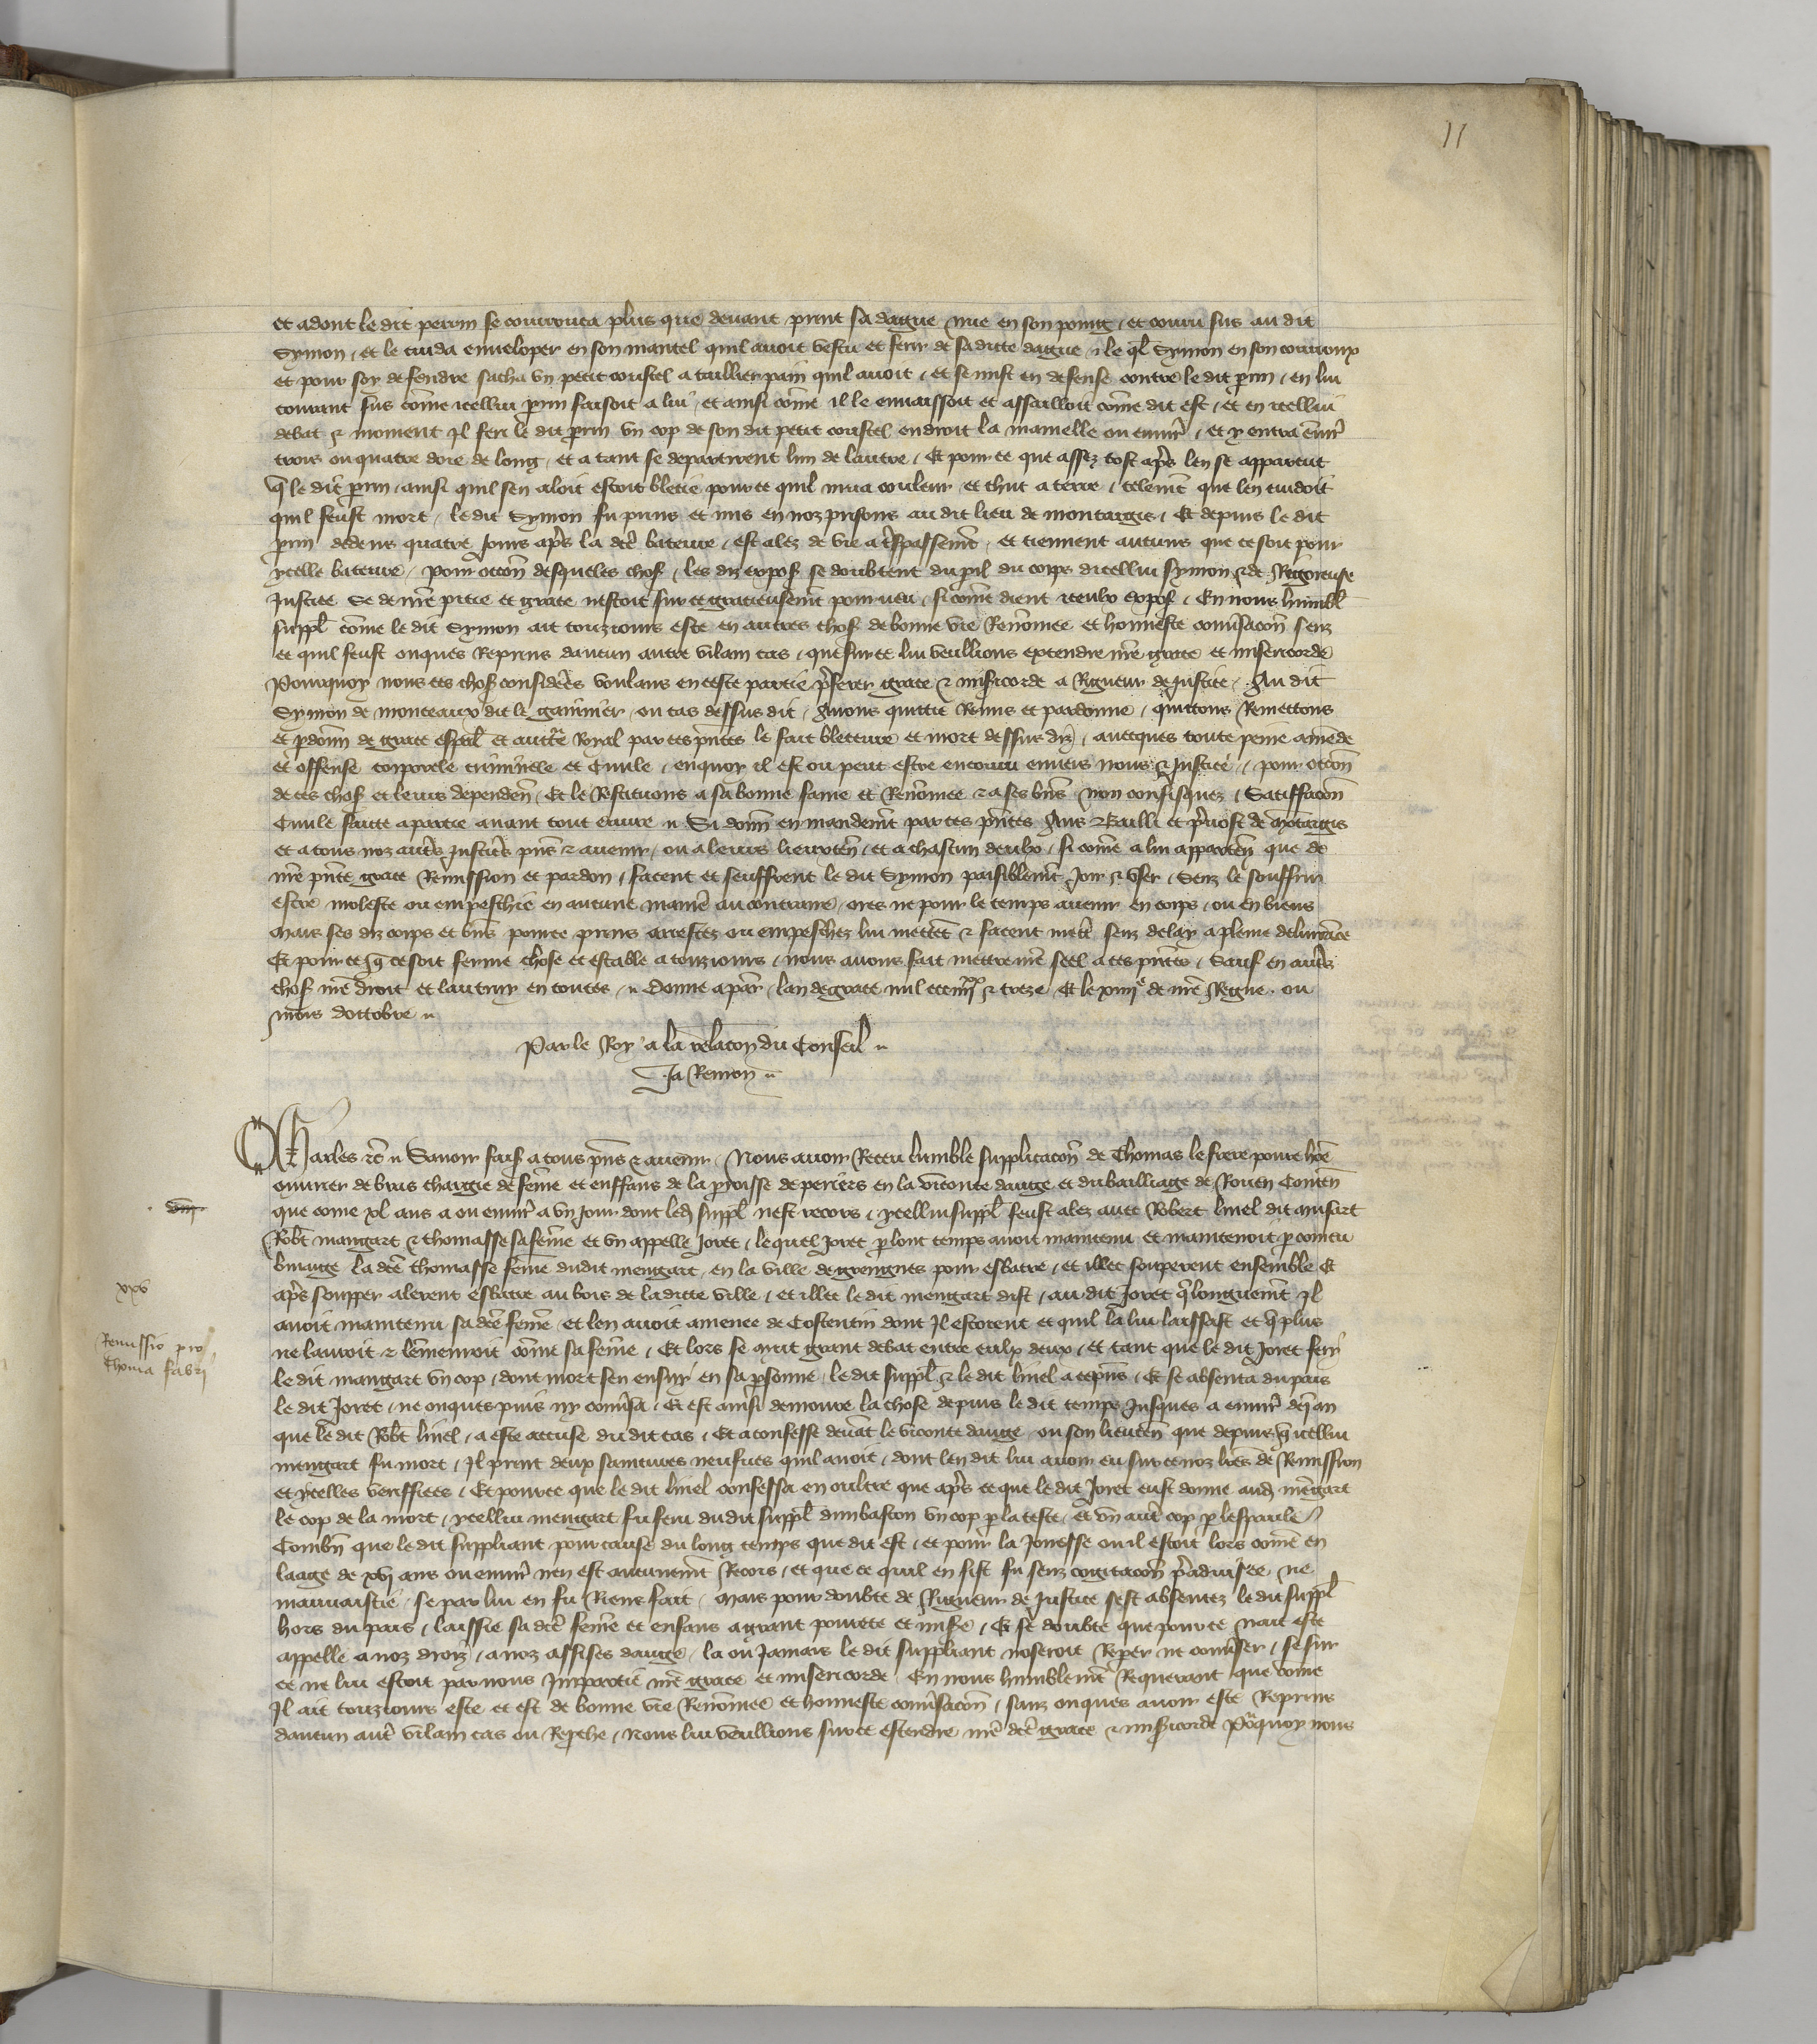 11
et adont le dit perrin se courrouca plus que devant print sa dague nue en son poing / et couru sus au dit
Symon / et le cuida enveloper en son mantel quil avoit vestu et ferir de sa dicte dague / le ql Symon en son courroux
et pour soy defendre sacha un petit coustel a taillier pain quil avoit / et se mist en defense contre le dit prin / en lui
courant sus come icellui prin faisoit a lui / et ainsi come il le envaissoit et assailloit come dit est / et en icellui
debat & moment Il feri le dit prin un cop de son dit petit coustel endroit la mamelle ou envir / et y entra envir
trois ou quatre doie de long / et a tant se departirent lun de lautre / Et pour ce que assez tost apres len se apparcut
q le dit prin / ainsi quil sen aloit estoit blecie pour ce quil mua couleur et chut a terre / telemt que len cuidoit
quil feust mort / le dit Symon fu prins et mis en noz prisons au dit lieu de montargis / Et depuis le dit
prin dedens quatre Jours apres la dce bateure / est alez de vie a trespassemt / et tiennent aucuns que ce soit pour
ycelle bateure / pour occon desqueles chos / les diz expos se doubtent du pil du corps dicellui Symon & de Rigoreuse
Justice Se de nre pitie et grace nestoit sur ce gracieusemt pourveu / si come dient iceulx expos / En nous humbl
suppl come le dit Symon ait touziours este en autres chos de bonne vie Renomee et honneste conversacon senz
ce quil feust onques Reprins daucun autre vilain cas / que sur ce lui veullions extendre nre grace et misericorde
Pourquoy nous ces chos considerees voulans en ceste partie preferer grace & misicorde a Rigueur de Justice / Au dit
Symon de monceaux dit le gainnier / ou cas dessus dit / Avons quittie Remis et pardonne / quittons Remettons
et pdonn de grace espcl et auctte Royal par ces pntes le fait bleceure et mort dessur diz / avecques toute peine amede
et offense corporele criminele et Civile / en quoy il est ou peut estre encouru envers nous & Justice / pour occon
de ces chos et leurs dependen / Et le Restituons a sa bonne fame et Renomee & a ses bns non confisquez / Satiffacon
Civile faicte a partie avant tout euvre Si donn en mandemt par ces pntes Aus Bailli et prevost de motargis
et a tous noz autres Justic pns & avenir / ou a leurs lieuxten / et a chascun deulx / si come a lui apparten que de
nre pnte grace Remission et pardon / facent et seuffrent le dit Symon paisiblemt Joir & user / Senz le souffrir
estre moleste ou empeschie en aucune maniere au contraire / ores ne pour le temps avenir en corps / ou en biens
Mais ses diz corps et bns pour ce prins arrestez ou empeschez lui mettet & facent mett senz delay a pleine delivrace
Et pour ce q ce soit ferme chose et estable a touziours / nous avons fait mettre nre seel a ces pntes / Sauf en autres
chos nre droit et lautruy en toutes / Donne a par / lan de grace mil cccc & treze Et le xiiii e de nre Regne ou
mois doctobre
Par le Roy a la relacon du Conseil
Ja Remon
Charles &c Savoir fais a tous pns & avenir / Nous avoir Receu lumble supplicacon de Thomas le fevre povre hoe
ouvrier de bras chargie de feme et enffans de la proisse de periers en la viconte dauge et du bailliage de Rouen Conten
que come xl ans a ou envir a un Jour dont led suppl nest recors / ycellui suppl feust alez avec Robert linel dit aufart
Robt mangart & thomasse sa feme et un appelle Joret / lequel Joret p lonc temps avoit maintenu et maintenoit
la dce thomasse feme dudit mengart en la ville de grengues pour esbatre / et illec souperent ensemble Et
apres soupper alerent esbatre au bois de ladicte ville / et illec le dit mengart dist / au dit Joret q longuemt Il
avoit maintenu sa dce feme / et len avoit amenee de Costentin dont Il estoient et quil la lui laissast et q plus
ne lavroit & lemenroit come sa feme / Et lors se meut grant debat entre eulx deux / et tant que le dit Joret feri
le dit mangart un cop / dont mort sen ensuy en sa psonne / le dit suppl & le dit linel a ce pns / Et se absenta du pais
le dit Joret / ne onques puis ny convsa / Et est ainsi demoure la chose depuis le dit temps Jusques a envir den an
que le dit Robt linel / a este accuse du dit cas / Et a confesse devat le viconte dauge ou son lieuten que depuis q icellui
mengart fu mort / Il print deux saintures neufves quil avoit / dont len dit lui avoir eu sur ce noz lres de Remission
et ycelles veriffiees / Et pour ce que le dit linel confessa en oultre que apres ce que le dit Joret eust donne aud mengart
le cop de la mort / ycellui mengart fu feru dudit suppl dun baston un cop p la teste / et un autre cop p lespaule
Combn que le dit suppliant pour cause du long temps que dit est / et pour la Jonesse ou il estoit lors come en
laage de xvj ans ou envir nen est aucunemt Recors / et que ce quil en fist fu senz cogitacon pradvisee ne
mauvaistie / se par lui en fu Riens fait / Mais pour doubte de Rigueur de Justice sest absentez le dit suppl
hors du pais / laissie sa dce feme et enfans a grant povrete et misere / Et se doubte que pour ce nait este
appelle a noz droiz / a noz assises dauge / la ou Jamais le dit suppliant noseroit Reper ne conveser / se sur
ce ne lui estoit par nous Imparti nre grace et misericorde En nous humblemt Requerant que come
Il ait touziours este et est de bonne vie Renomee et honneste convsacon / sanz onques avoir este Reprins
daucun autre vilain cas ou Reprche / Nous lui veullions sur ce estendre nre dce grace & misicorde Pourquoy nous
xxv
Remissio pro
Thoma fabri